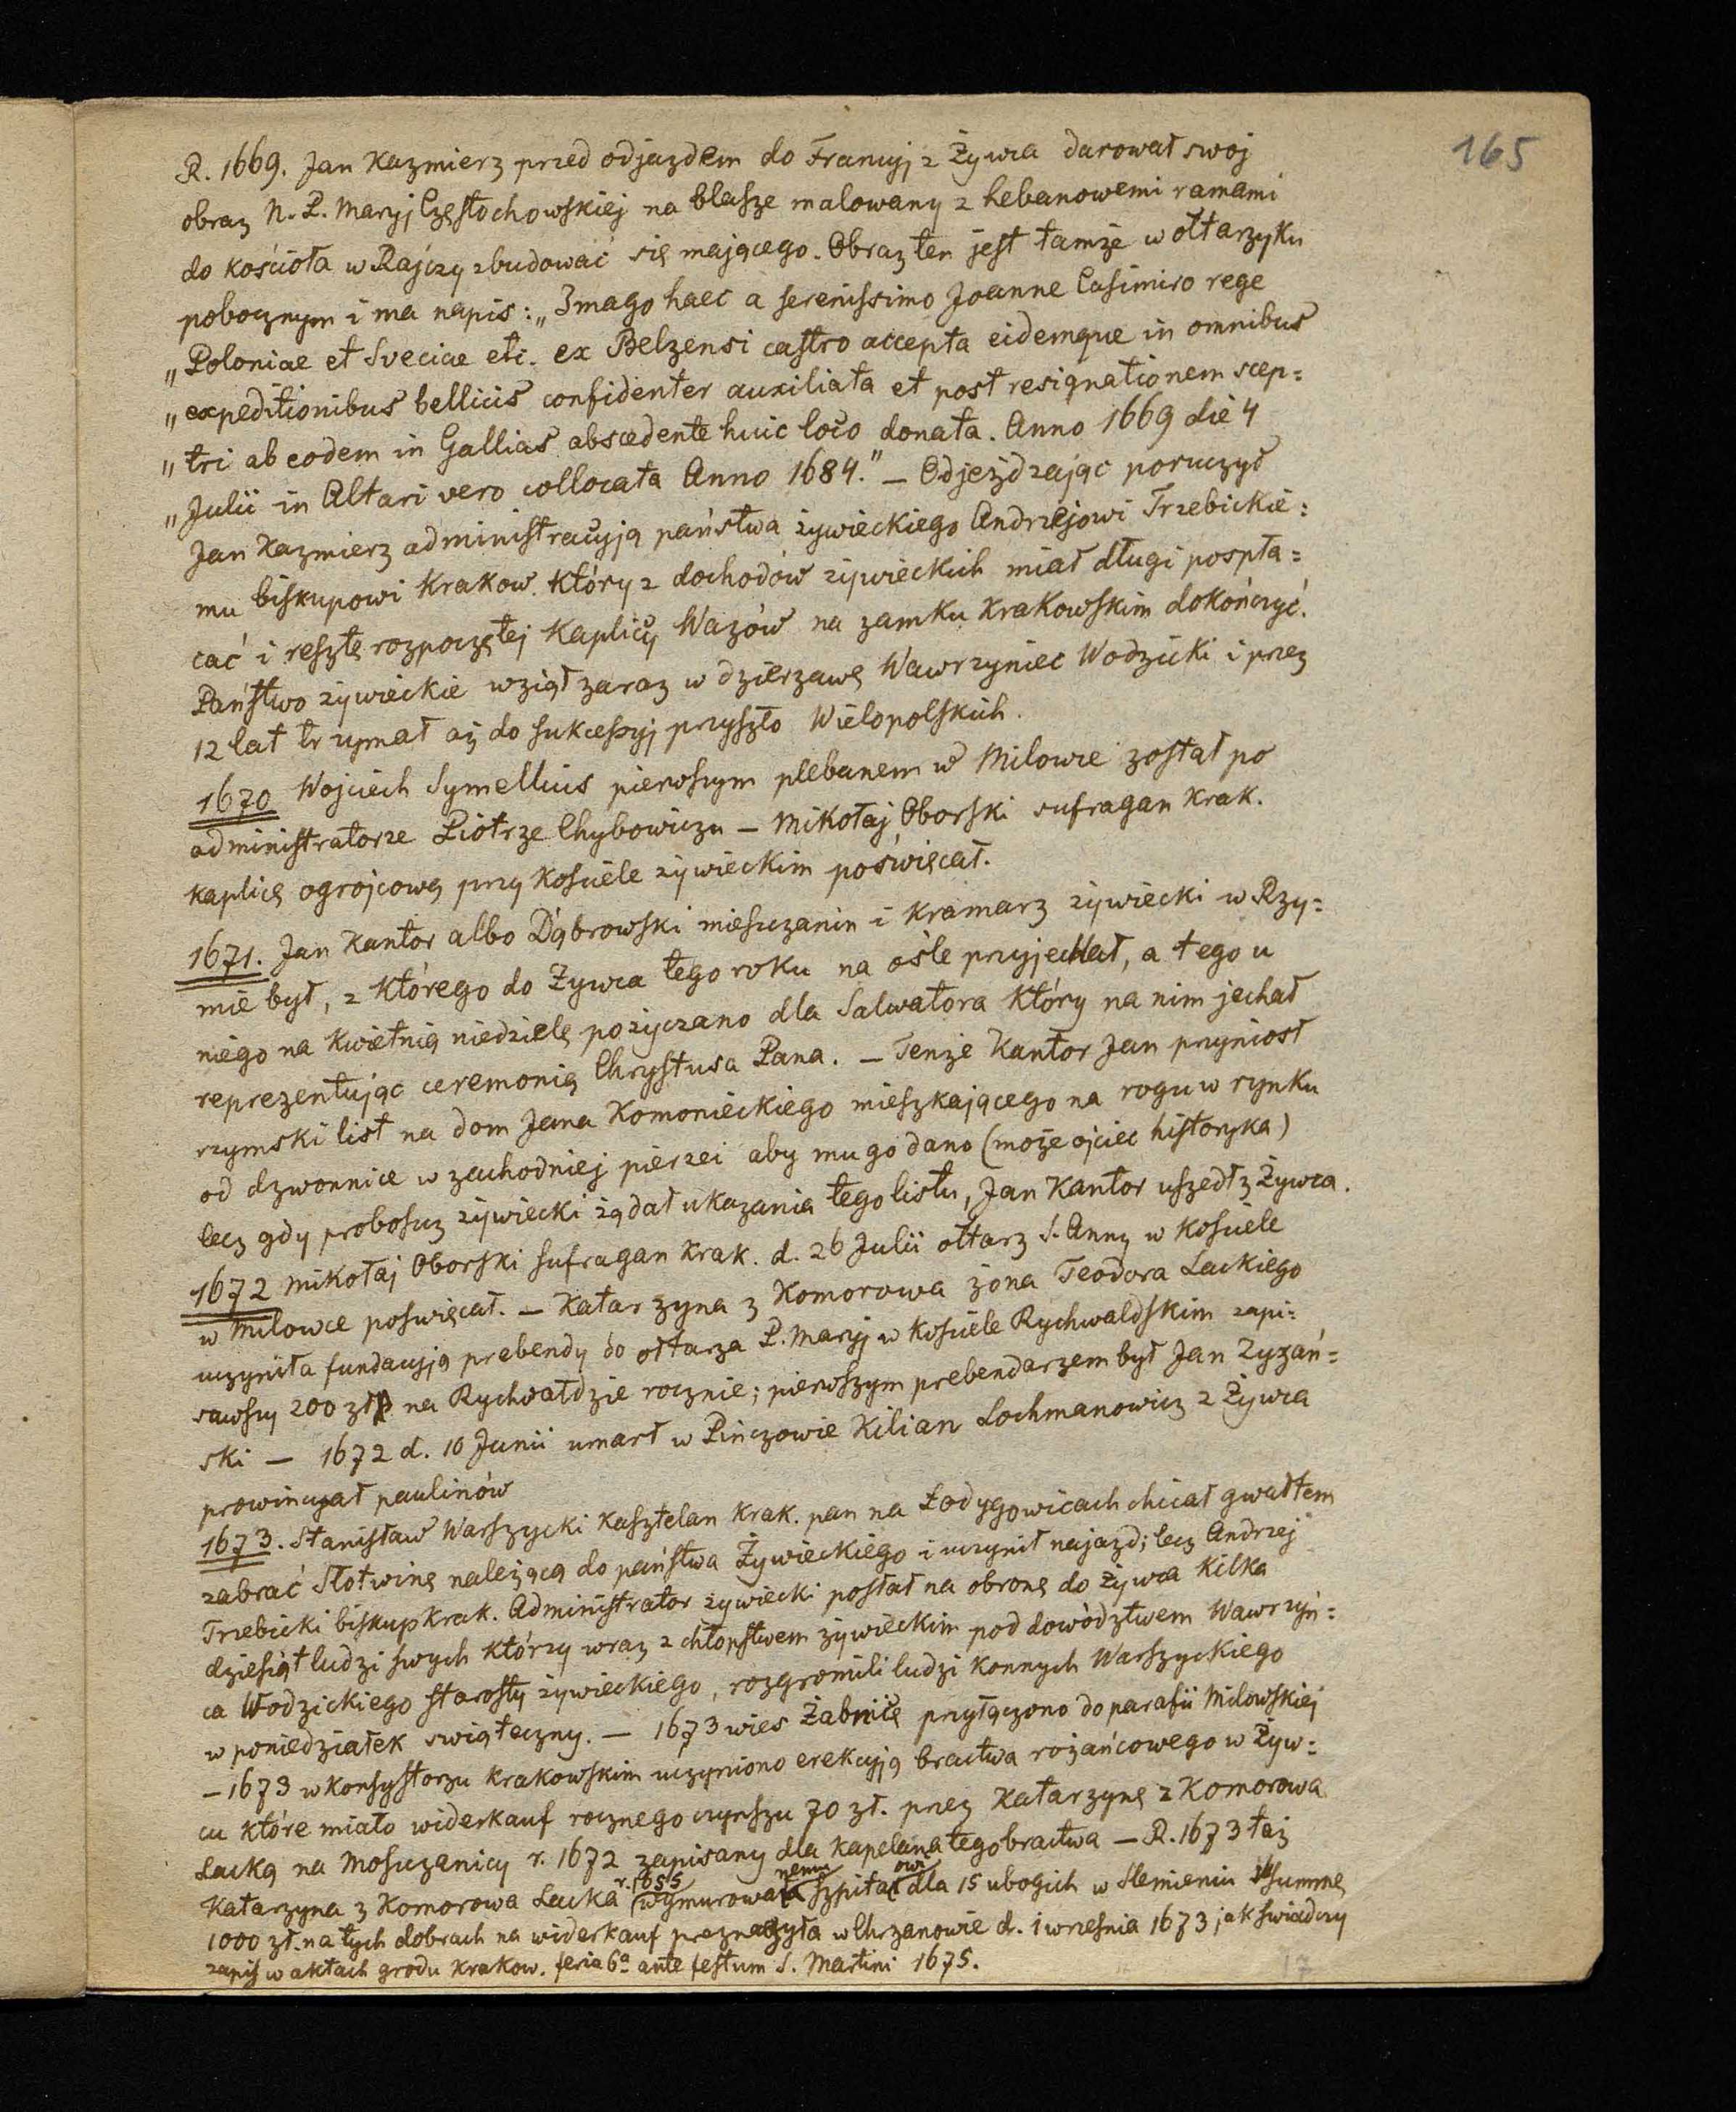 165
R. 1669. Jan Kazmierz przed odjazdem do Francyj z Żywca darował swoj
obraz N. P. Maryj Częstochowskiej na blasze malowany z hebanowemi ramami
do kościoła w Rajczy zbudować się mającego. Obraz ten jest tamże w ołtarzyku
pobocznym i ma napis: „Imago haec a serenissimo Joanne Casimiro rege
„Poloniae et Sveciae etc. ex Belzensi castro accepta eidemque in omnibus
„expeditionibus bellicis confidenter auxiliata et post resignationem scep=
„tri ab eodem in Gallias abscedente huic loco donata. Anno 1669 die 4
„Julii in Altari vero collocata Anno 1684." — Odjeżdzając poruczył
Jan Kazmierz administracyją państwa żywieckiego Andrzejowi Trzebickie=
mu biskupowi Krakow. który z dochodów żywieckich miał długi pospła=
cać i resztę rozpoczętej Kaplicy Wazów na zamku Krakowskim dokończyć.
Państwo żywieckie wziął zaraz w dzierzawę Wawrzyniec Wodzicki i przez
12 lat trzymał aż do sukcessyj przyszło Wielopolskich.
1670 Wojciech Symellius pierwszym plebanem w Milowce został po
administratorze Piotrze Chybowiczu — Mikołaj Oborski sufragan Krak.
kaplicę ogrojcową przy Kościele żywieckim poświęcał.
1671. Jan Kantor albo Dąbrowski mieszczanin i Kramarz żywiecki w Rzy=
mie był, z którego do Żywca tego roku na ośle przyjechał, a tego u
niego na kwietnią niedzielę pożyczano dla Salwatora który na nim jechał
reprezentując ceremonią Chrystusa Pana. — Tenże Kantor Jan przyniosł
rzymski list na dom Jana Komonieckiego mieszkającego na rogu w rynku
od dzwonnice w zachodniej pierzei aby mu go dano (może ojciec historyka)
lecz gdy proboszcz żywiecki żądał ukazania tego listu, Jan Kantor uszedł z Żywca.
1672 Mikołaj Oborski sufragan Krak. d. 26 Julii ołtarz S. Anny w Kościele
w Milowce poswięcał. — Katarzyna z Komorowa żona Teodora Lackiego
uczyniła fundacyją prebendy do ołtarza P. Maryj w Kościele Rychwaldskim zapi=
sawszy 200 zł na Rychwałdzie rocznie; pierwszym prebendarzem był Jan Zyzań=
ski — 1672 d. 10 Junii umarł w Pińczowie Kilian Lochmanowicz z Żywca
prowincyał paulinów
1673. Stanisław Warszycki Kasztelan Krak. pan na Łodygowicach chciał gwałtem
zabrać Słotwinę należącą do państwa Żywieckiego i uczynił najazd; lecz Andrzej
Trzebicki biskup Krak. Administrator żywiecki posłał na obronę do Żywca kilka
dziesiąt ludzi swych którzy wraz z chłopstwem żywieckim pod dowództwem Wawrzyń=
ca Wodzickiego starosty żywieckiego, rozgromili ludzi konnych Warszyckiego
w poniedziałek swiąteczny. — 1673 wies Żabnicę przyłączono do parafii Milowskiej
— 1673 w konsystorzu Krakowskim uczyniono erekcyją bractwa rożańcowego w Żyw=
cu które miało widerkauf rocznego czynszu 70 zł. przez Katarzynę z Komorowa
Lacką na Moszczanicy r. 1672 zapisany dla kapelana tego bractwa — R. 1673 taż
r. 1655 nemu owi
Katarzyna z Komorowa Lacka wymurowała szpital dla 15 ubogich w Slemieniu summę
1000 zł. na tych dobrach na widerkauf przeznaczyła w Chrzanowie d. 1 wrzesnia 1673 jak swiadczy
zapis w aktach grodu Krakow. feria 6ª ante festum S. Martini 1675.
17